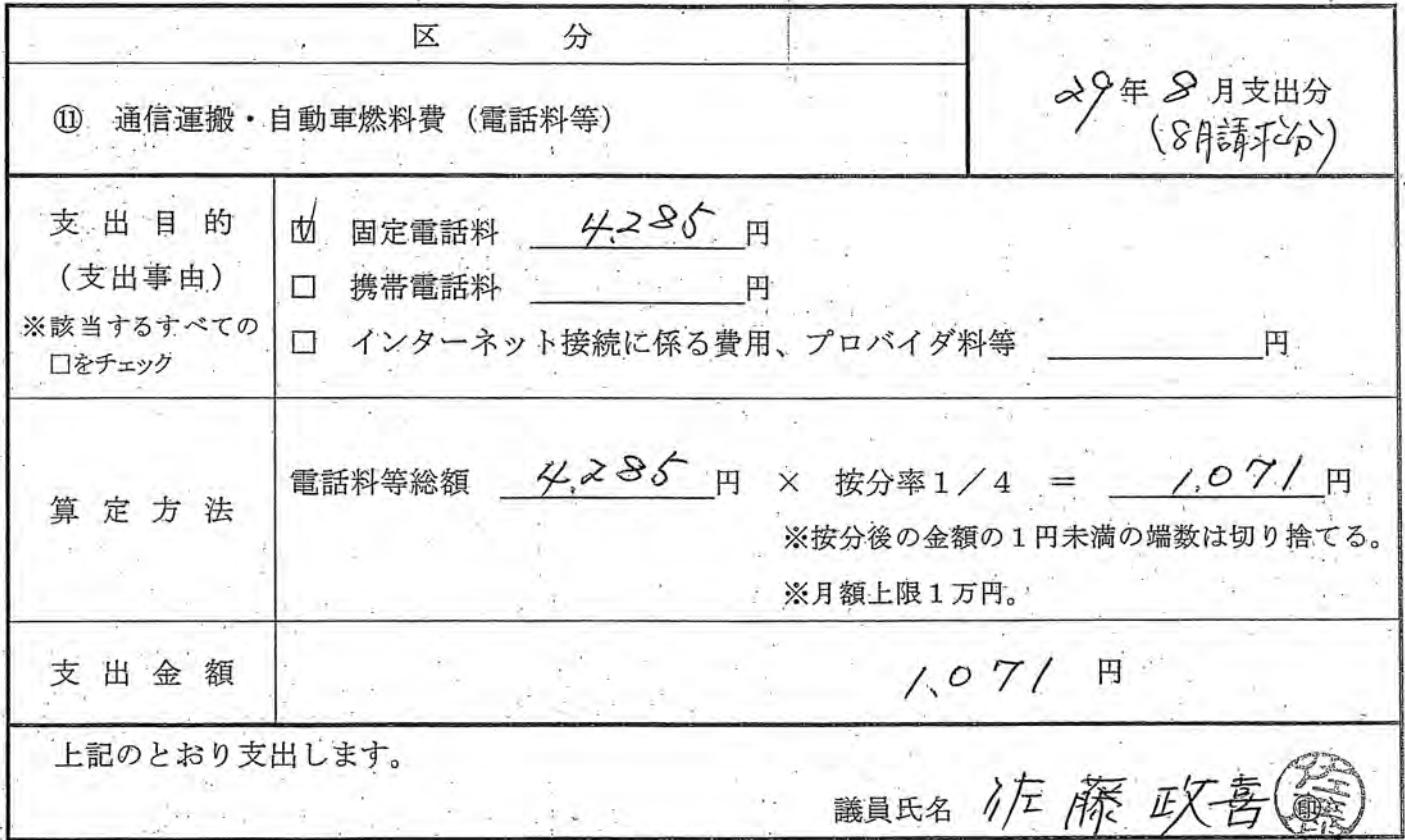 区 分
⑪ 通信運搬・自動車燃料費（電話料等）
29年 8 月支出分
(8月請求分)
支 出 目 的
（支出事由）
※該当するすべての
□をチェック
☑ 固定電話料 4,285 円
□ 携帯電話料 円
□ インターネット接続に係る費用、プロバイダ料等 円
算 定 方 法
電話料等総額 4,285 円 × 按分率１／４ ＝ 1,071 円
※按分後の金額の１円未満の端数は切り捨てる。
※月額上限１万円。
支 出 金 額
1,071 円
上記のとおり支出します。
議員氏名 佐藤 政喜 印